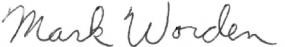 Mark Worden